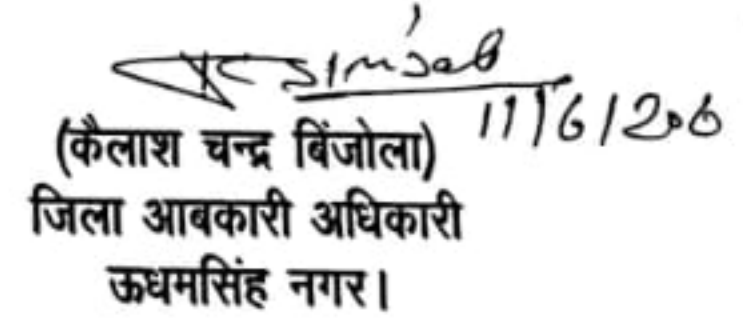 11/6/2006
(कैलाश चन्द्र बिंजोला)
जिला आबकारी अधिकारी
ऊधमसिंह नगर।